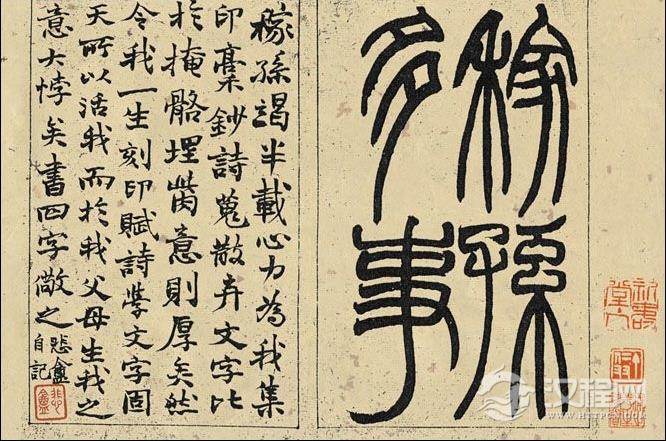 稼孫
多事
稼孫竭半載心力為我集
印稾鈔詩蒐散弃文字比
於掩骼埋胔意則厚矣然
令我一生刻印賦詩學文字固
天所以活我而於我父母生我之
意大悖矣書四字儆之
悲盦
自記
悲盦
汉程网
HTTPCN.COM